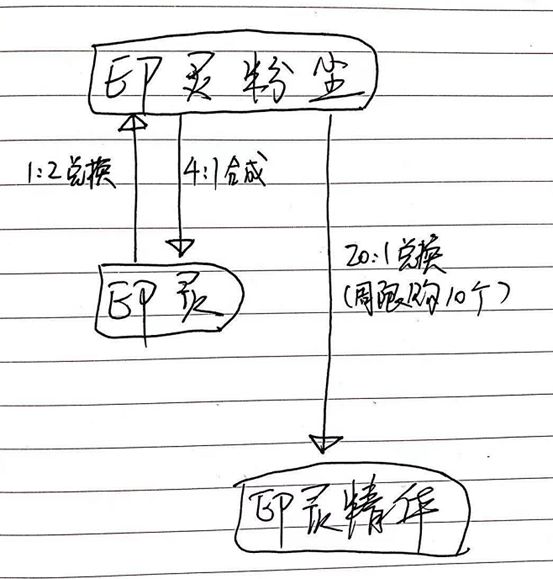 印灵粉尘
1:2兑换
4:1合成
印灵
20:1兑换
(周限购10个)
印灵精华